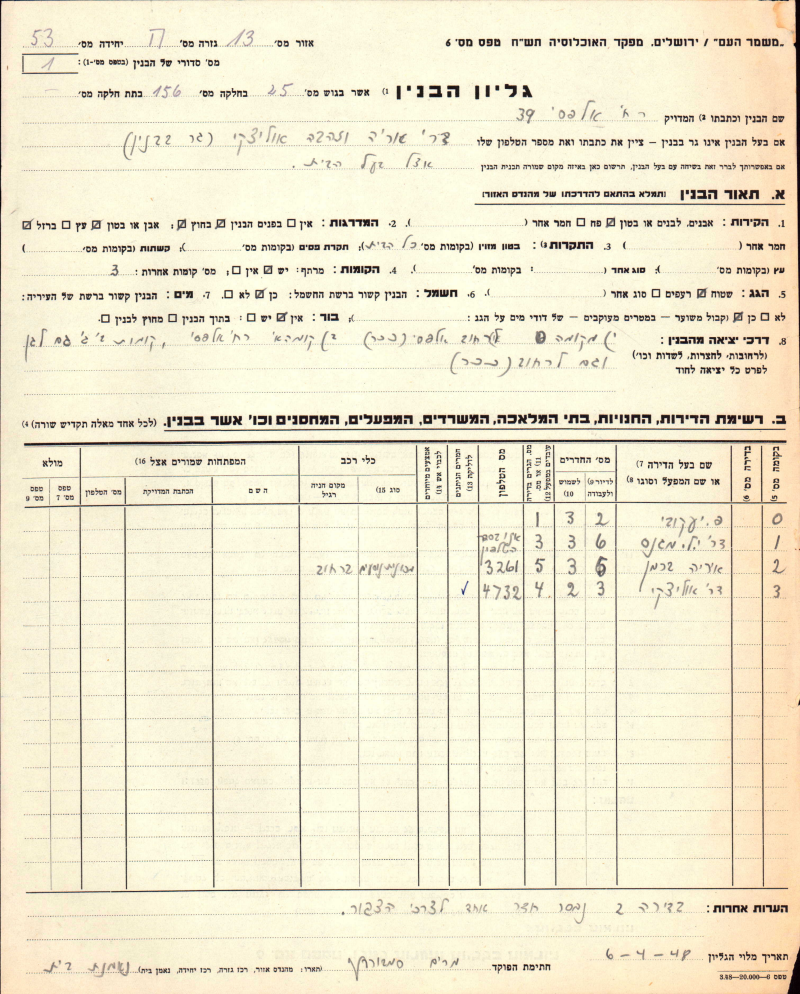 „משמר העם" / ירושלים. מפקד האוכלוסיה תש"ח טפס מס' 6
אזור מס' 13 גזרה מס' יחידה מס' 53
מס' סדורי של הבנין (בטפס מס'-1): 1
גליון הבנין 1) אשר בגוש מס' 25 בחלקה מס' 156 בתת חלקה מס' —
שם הבנין וכתבתו 2) המדויק רח' אלפסי 39
אם בעל הבנין אינו גר בבנין – ציין את כתבתו ואת מספר הטלפון שלו דר' אוליצקי (גר בבנין)
אם באפשרותך לברר זאת בשיחה עם בעל הבנין, תרשום כאן באיזה מקום שמורה תכנית הבנין אצל בעל הבית.
א. תאור הבנין (תמלא בהתאם להדרכתו של מהנדס האזור)
1. הקירות: אבנים, לבנים או בטון ☑ פח ☐ חמר אחר ( ). 2. המדרגות: אין ☐ בפנים הבנין ☑ בחוץ ☑; אבן או בטון ☑ עץ ☐ ברזל ☑
חמר אחר ( ) 3. התקרות 3): בטון מזוין (בקומות מס' כל הבית); תקרת פסים (בקומות מס' ); קשתות (בקומות מס' )
עץ (בקומות מס' ); סוג אחד ( : בקומות מס' ). 4. הקומות: מרתף: יש ☑ אין ☐; מס' קומות אחרות: 3
5. הגג: שטוח ☑ רעפים ☐ סוג אחר ( ). 6. חשמל: הבנין קשור ברשת החשמל: כן ☑ לא ☐. 7. מים: הבנין קשור ברשת של העיריה:
לא ☐ כן ☑ (וקבול משוער – במטרים מעוקבים – של דודי מים על הגג: ); בור: אין ☑ יש ☐: בתוך הבנין ☐ מחוץ לבנין ☐.
8. דרכי יציאה מהבנין: 1) מקומה 0 לרחוב אלפסי (ככר) 2) קומה א' רח' אלפסי, קומות ב' ג' גם לגן
(לרחובות, לחצרות, לשדות וכו') וגם לרחוב (ככר)
לפרט כל יציאה לחוד
ב. רשימת הדירות, החנויות, בתי המלאכה, המשרדים, המפעלים, המחסנים וכו' אשר בבנין. (לכל אחד מאלה תקדיש שורה) 4)
בקומה מס' 5) בדירה מס' 6) שם בעל הדירה 7) או שם המפעל וסוגו 8) מס' החדרים לדיור 9) ולעבודה לשמוש 10) מס. הגרים בדירה 11) או מס. עובדים במפעל 12) מס הטלפון חמרים הניתנים לדליקה 13) אמצעים מיוחדים לכבוי אש 14) כלי רכב סוג 15) מקום חניה רגיל המפתחות שמורים אצל 16) השם הכתבת המדויקת מס' הטלפון מולא טפס מס' 7 טפס מס' 9
0 פ. יעקובי 2 3 1
1 דר' י.ל. מגנס 6 3 3 הטלפון
2 אריה ברמן 5 3 5 3261 ברחוב
3 דר' אוליצקי 3 2 4 4732 ✓
הערות אחרות: בדירה 2 נמסר חדר אחד לצרכי הצבור.
תאריך מלוי הגליון 6-4-48 חתימת הפוקד מרים (תארו: מהנדס אזור, רכז גזרה, רכז יחידה, נאמן בית) נאמנת בית
טפס 6—20.000—3.48